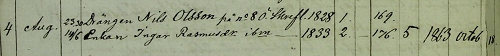 4 Aug. 23/30 Drängen Nils Olsson på nº 8 Ö. Skrefl. 1828 1. 169.
14/6 Enkan Ingar Rasmusdr ibm 1833 2 176 5 1863 octob